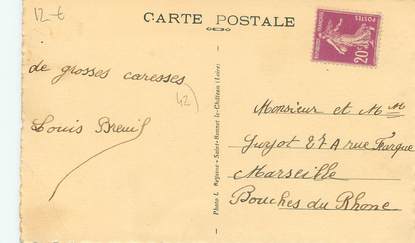 12-t
CARTE POSTALE
RÉPUBLIQUE FRANÇAISE
POSTES
20c
de grosses caresses
42
Louis Breuil
Photo L. - Saint-Bonnet le-Château (Loire)
Monsieur et Mme
Guyot 27 A rue
Marseille
Bouches du Rhone